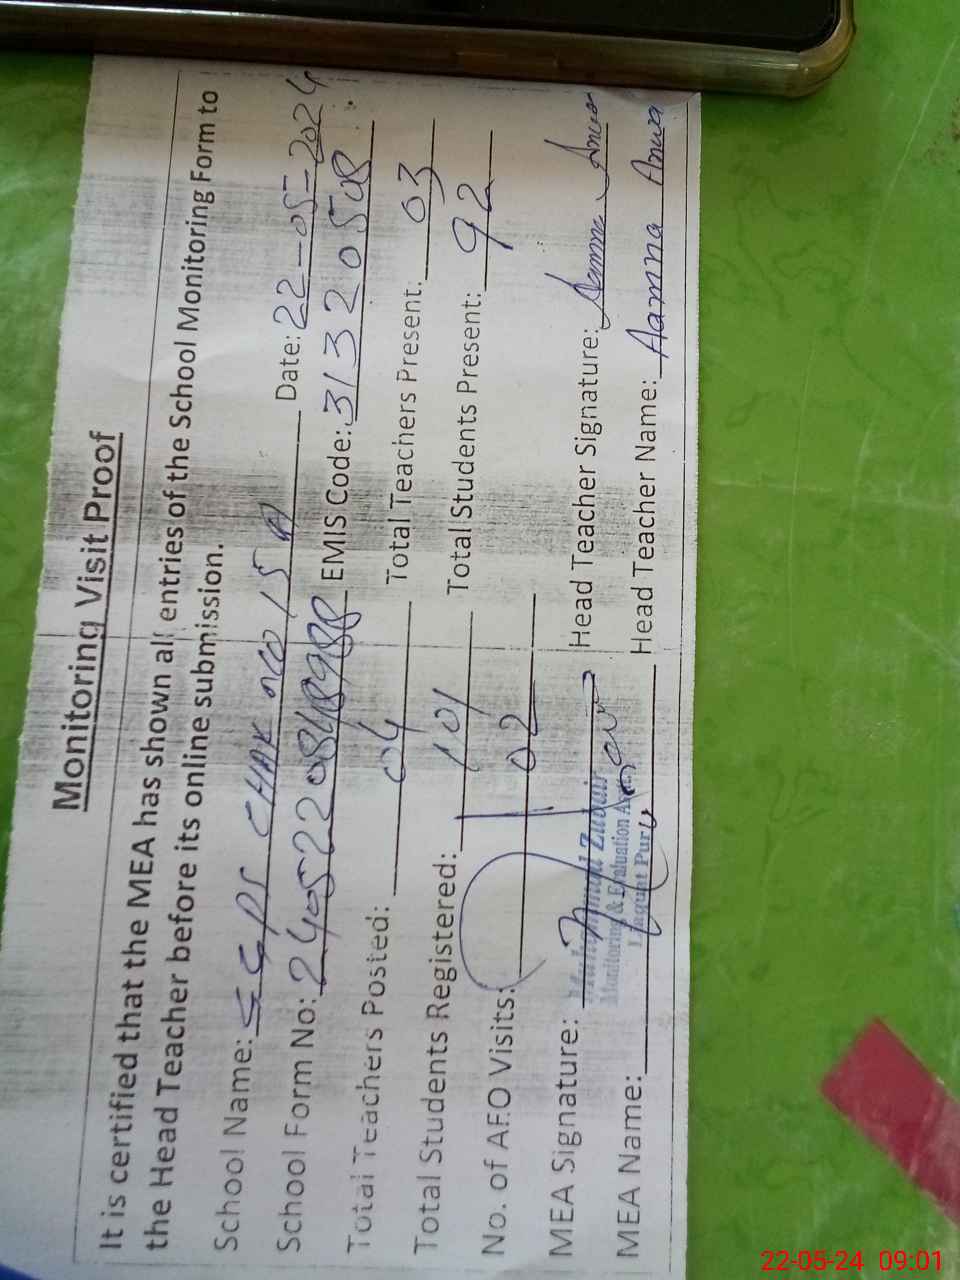 Monitoring Visit Proof
It is certified that the MEA has shown all entries of the School Monitoring Form to
the Head Teacher before its online submission.
School Name: GGPS CHAK NO 15 A Date: 22-05-2024
School Form No: 2405220848988 EMIS Code: 31320508
Total Teachers Posted: 04 Total Teachers Present: 03
Total Students Registered: 101 Total Students Present: 92
No. of AEO Visits: 02
MEA Signature: Head Teacher Signature: Aamna Anwa
Muhammad Zubair
Monitoring & Evaluation
Liaquat Pur
MEA Name: Head Teacher Name: Aamna Anwa
22-05-24 09:01